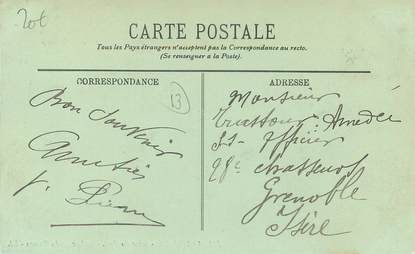 CARTE POSTALE
Tous les Pays étrangers n'acceptent pas la Correspondance au recto.
(Se renseigner à la Poste).
CORRESPONDANCE
13
Bon Souvenir
Amitiés
ADRESSE
Monsieur
Amédée
Officier
28e chasseurs
Grenoble
Isère